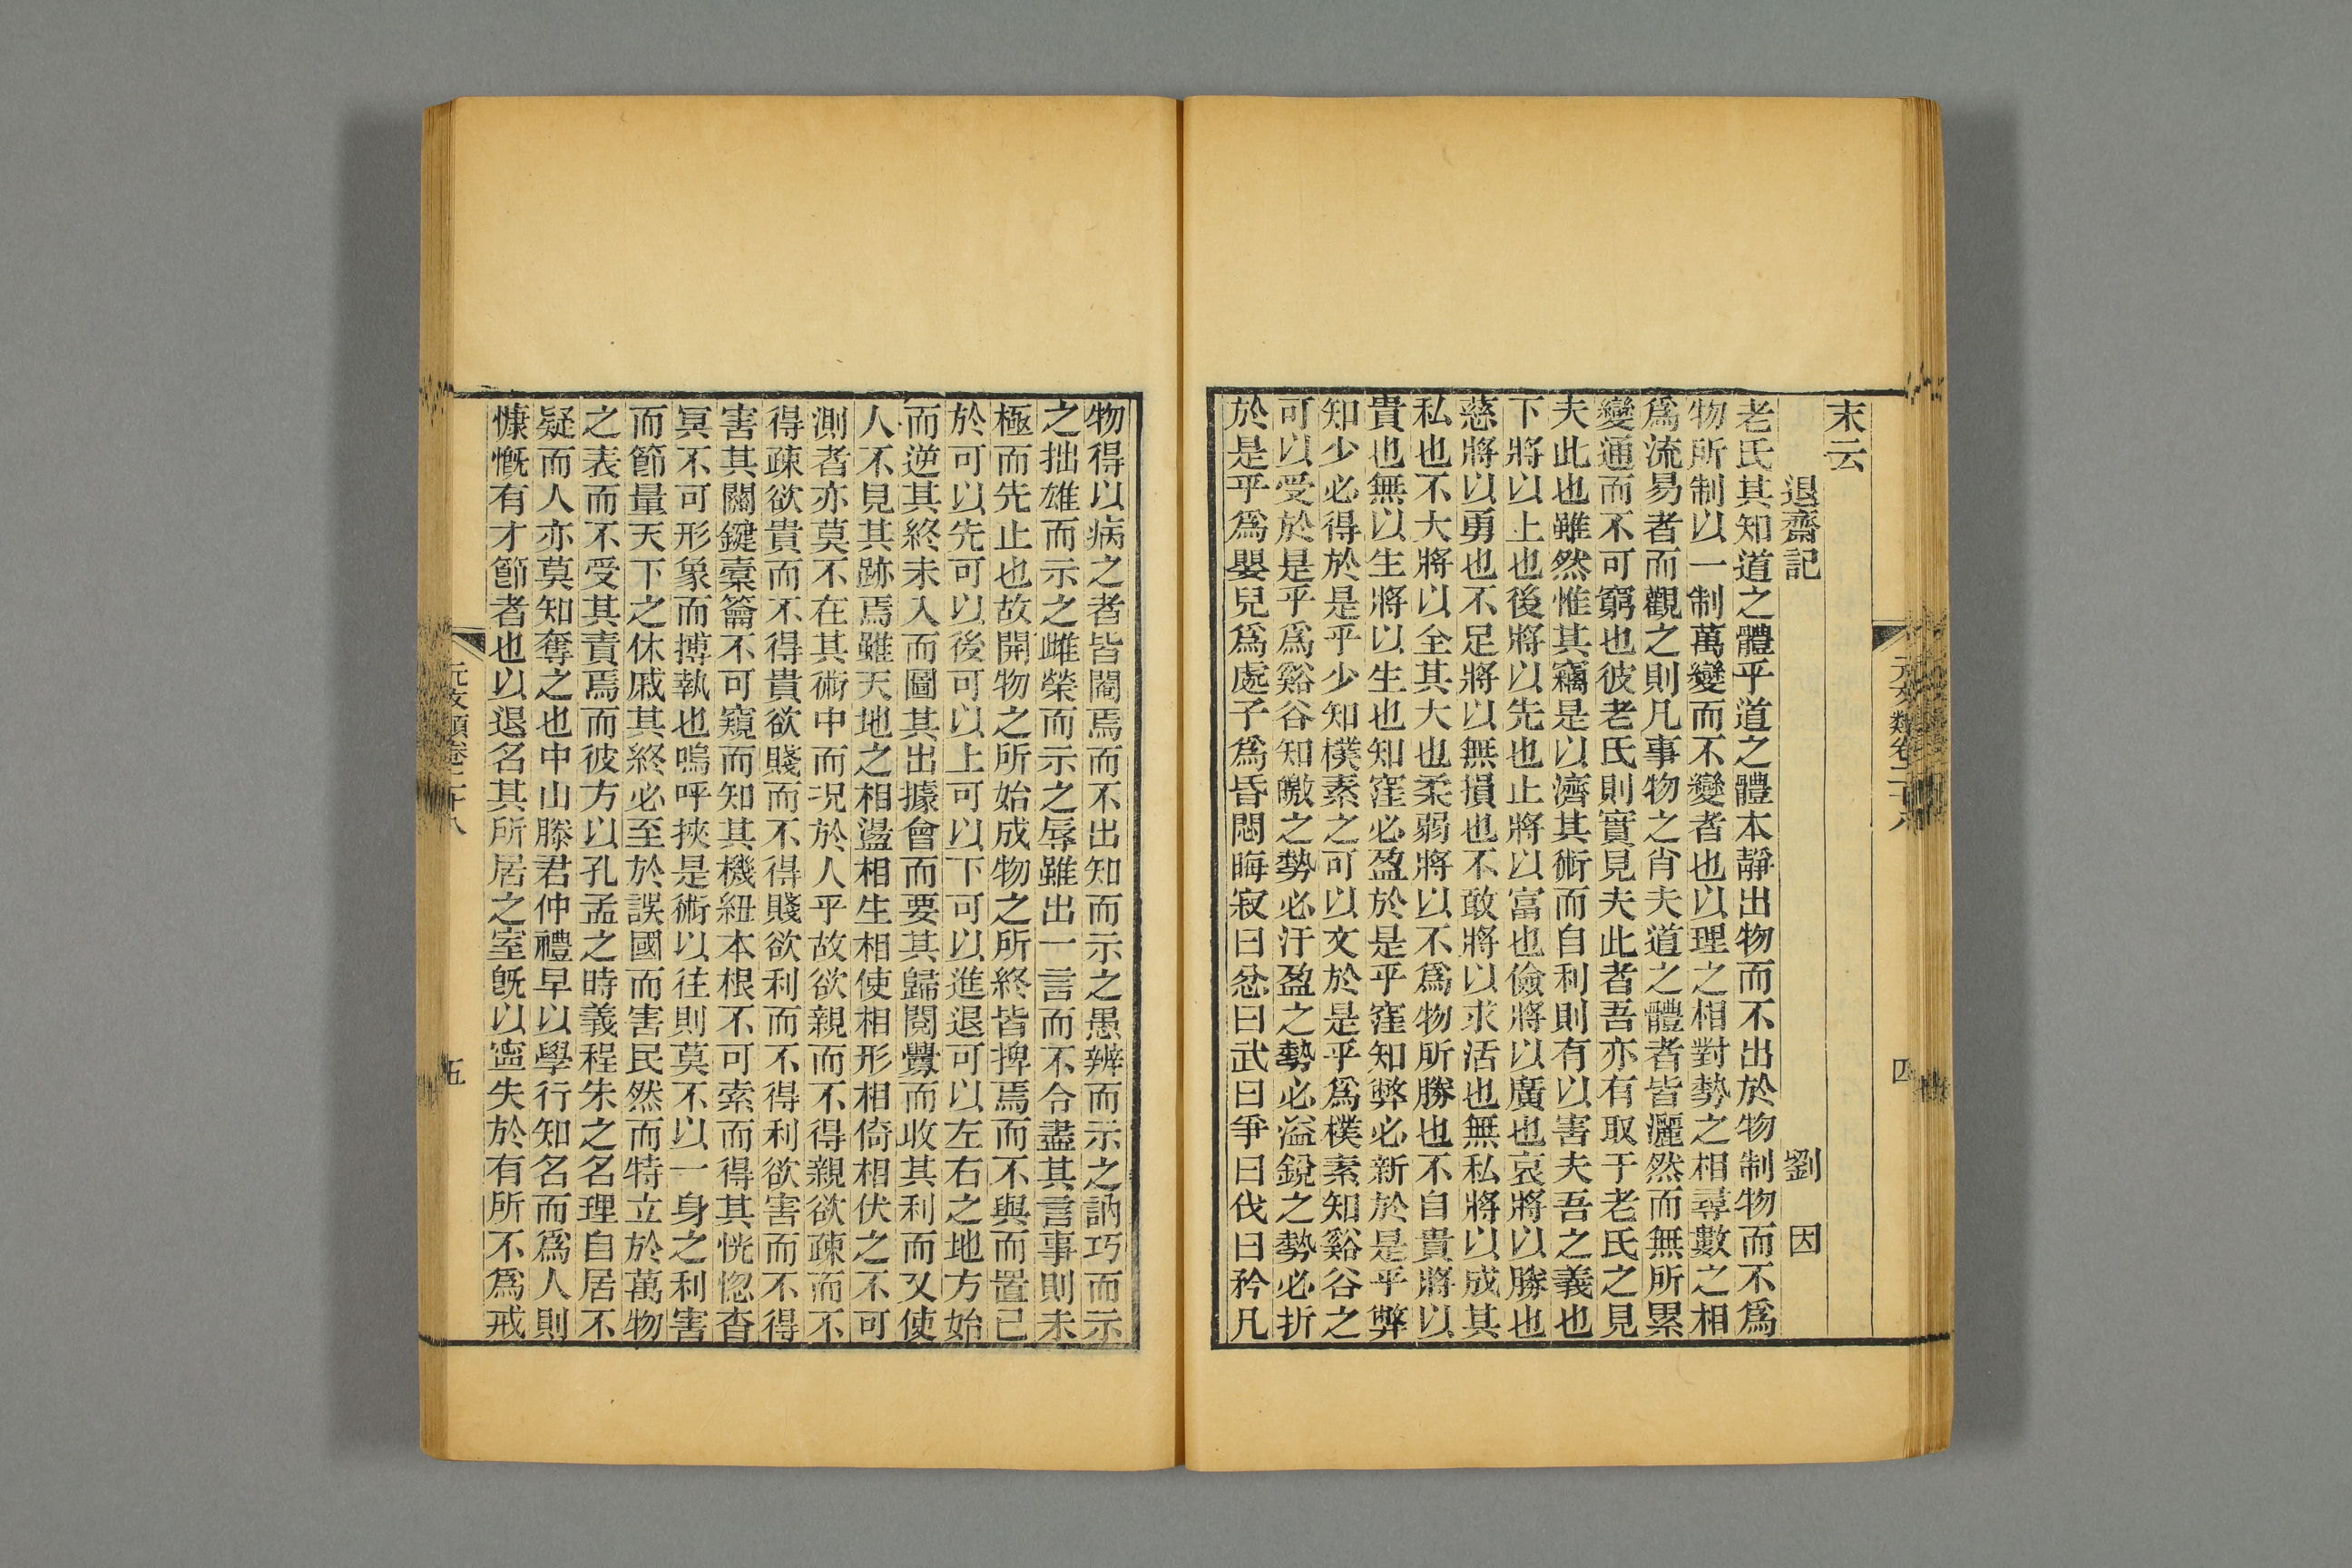 末云
退齋記 劉因
老氏其知道之體乎道之體本靜出物而不出於物制物而不爲
物所制以一制萬變而不變者也以理之相對勢之相尋數之相
爲流易者而觀之則凡事物之肖夫道之體者皆灑然而無所累
變通而不可窮也彼老氏則實見夫此者吾亦有取于老氏之見
夫此也雖然惟其竊是以濟其術而自利則有以害夫吾之義也
下將以上也後將以先也止將以富也儉將以廣也哀將以勝也
慈將以勇也不足將以無損也不敢將以求活也無私將以成其
私也不大將以全其大也柔弱將以不爲物所勝也不自貴將以
貴也無以生將以生也知窪必盈於是乎窪知弊必新於是乎弊
知少必得於是乎少知樸素之可以文於是乎爲樸素知谿谷之
可以受於是乎爲谿谷知皦之勢必汙盈之勢必溢銳之勢必折
於是乎爲嬰兒爲處子爲昏悶晦寂曰忿曰武曰爭曰伐曰矜凡
元文類卷二十八
四
物得以病之者皆閹焉而不出知而示之愚辨而示之訥巧而示
之拙雄而示之雌榮而示之辱雖出一言而不令盡其言事則未
極而先止也故開物之所始成物之所終皆捭焉而不與而置己
於可以先可以後可以上可以下可以進退可以左右之地方始
而逆其終未入而圖其出據會而要其歸閱釁而收其利而又使
人不見其跡焉雖天地之相盪相生相使相形相倚相伏之不可
測者亦莫不在其術中而况於人乎故欲親而不得親欲疎而不
得疎欲貴而不得貴欲賤而不得賤欲利而不得利欲害而不得
害其關鍵橐籥不可窺而知其機紐本根不可索而得其恍惚杳
冥不可形象而搏執也嗚呼挾是術以往則莫不以一身之利害
而節量天下之休戚其終必至於誤國而害民然而特立於萬物
之表而不受其責焉而彼方以孔孟之時義程朱之名理自居不
疑而人亦莫知奪之也中山滕君仲禮早以學行知名而爲人則
慷慨有才節者也以退名其所居之室旣以寧失於有所不爲戒
元文類卷二十八
五